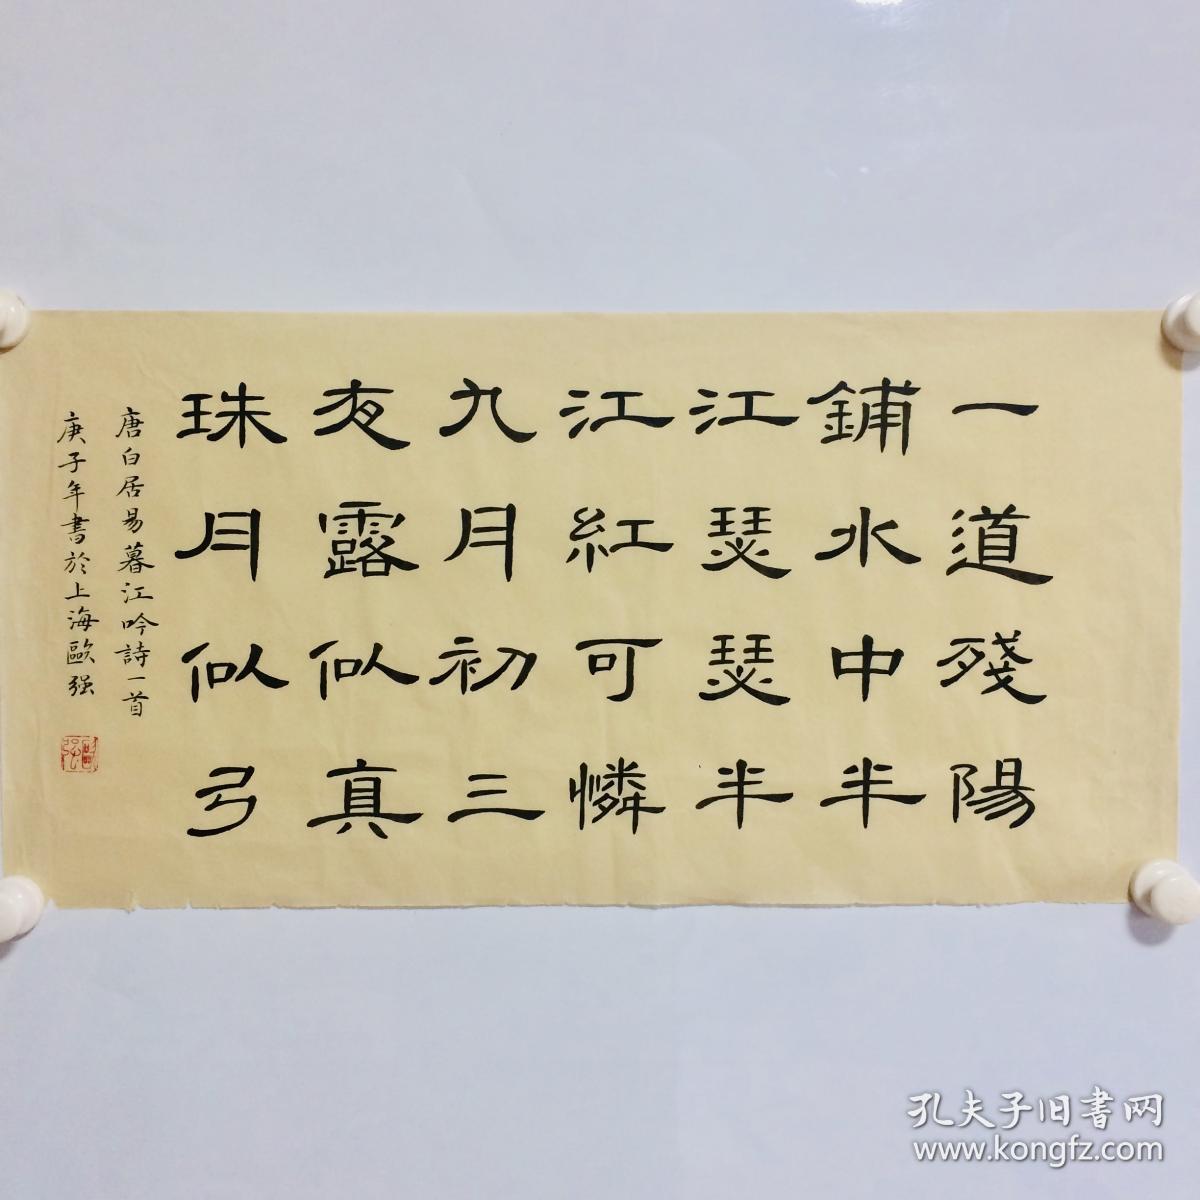 一道殘陽
鋪水中半
江瑟瑟半
江紅可憐
九月初三
夜露似真
珠月似弓
唐白居易暮江吟詩一首
庚子年書於上海歐强
孔夫子旧書网
www.kongfz.com